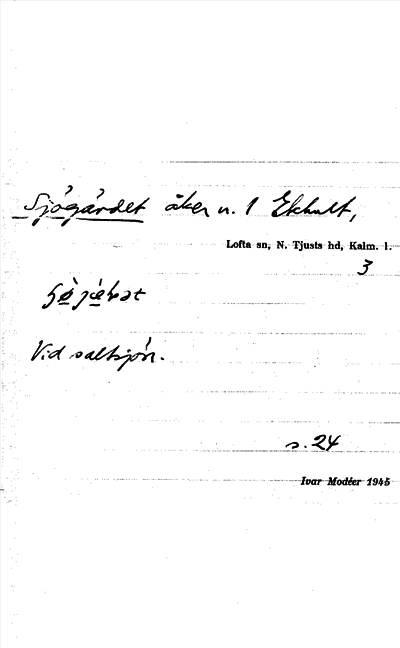 Sjögärdet åker n. 1 Ekhult,
Lofta sn, N. Tjusts hd, Kalm. l.
3
Vid saltsjön.
s. 24
Ivar Modéer 1945